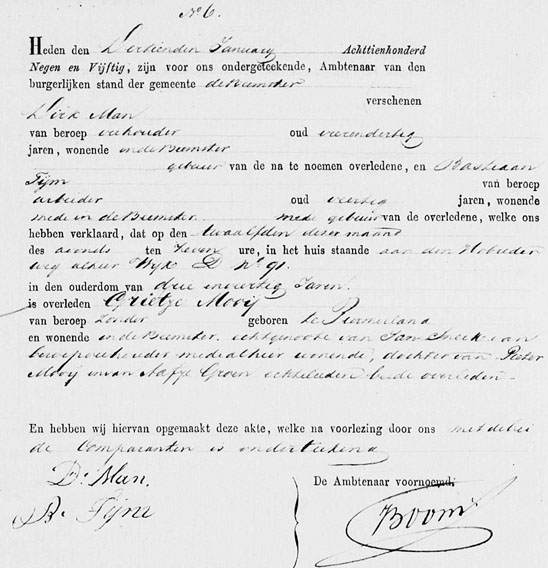 No 6.
Heden den Dertienden January Achttienhonderd
Negen en Vijftig, zijn voor ons ondergeteekende, Ambtenaar van den
burgerlijken stand der gemeente de Beemster
verschenen
Dirk Man
van beroep veehouder oud vierendertig
jaren, wonende in de Beemster
gebuur van de na te noemen overledene, en Bastiaan
Tijm van beroep
arbeider oud veertig jaren, wonende
mede in de Beemster mede gebuur van de overledene, welke ons
hebben verklaard, dat op den twaalfden dezer maand
des avonds ten zeven ure, in het huis staande aan den Hobreder
weg alhier Wyk D No 91.
in den ouderdom van drie en veertig Jaren
is overleden Grietje Mooij
van beroep zonder geboren te Purmerland
en wonende in de Beemster. echtgenoote van Jan Sneek van
beroep veehouder mede alhier wonende, dochter van Pieter
Mooij en van Aafje Groen echtelieden beide overleden.
En hebben wij hiervan opgemaakt deze akte, welke na voorlezing door ons met de bei
de Comparanten is onderteekend
D. Man.
B. Tijm
De Ambtenaar voornoemd,
Boom